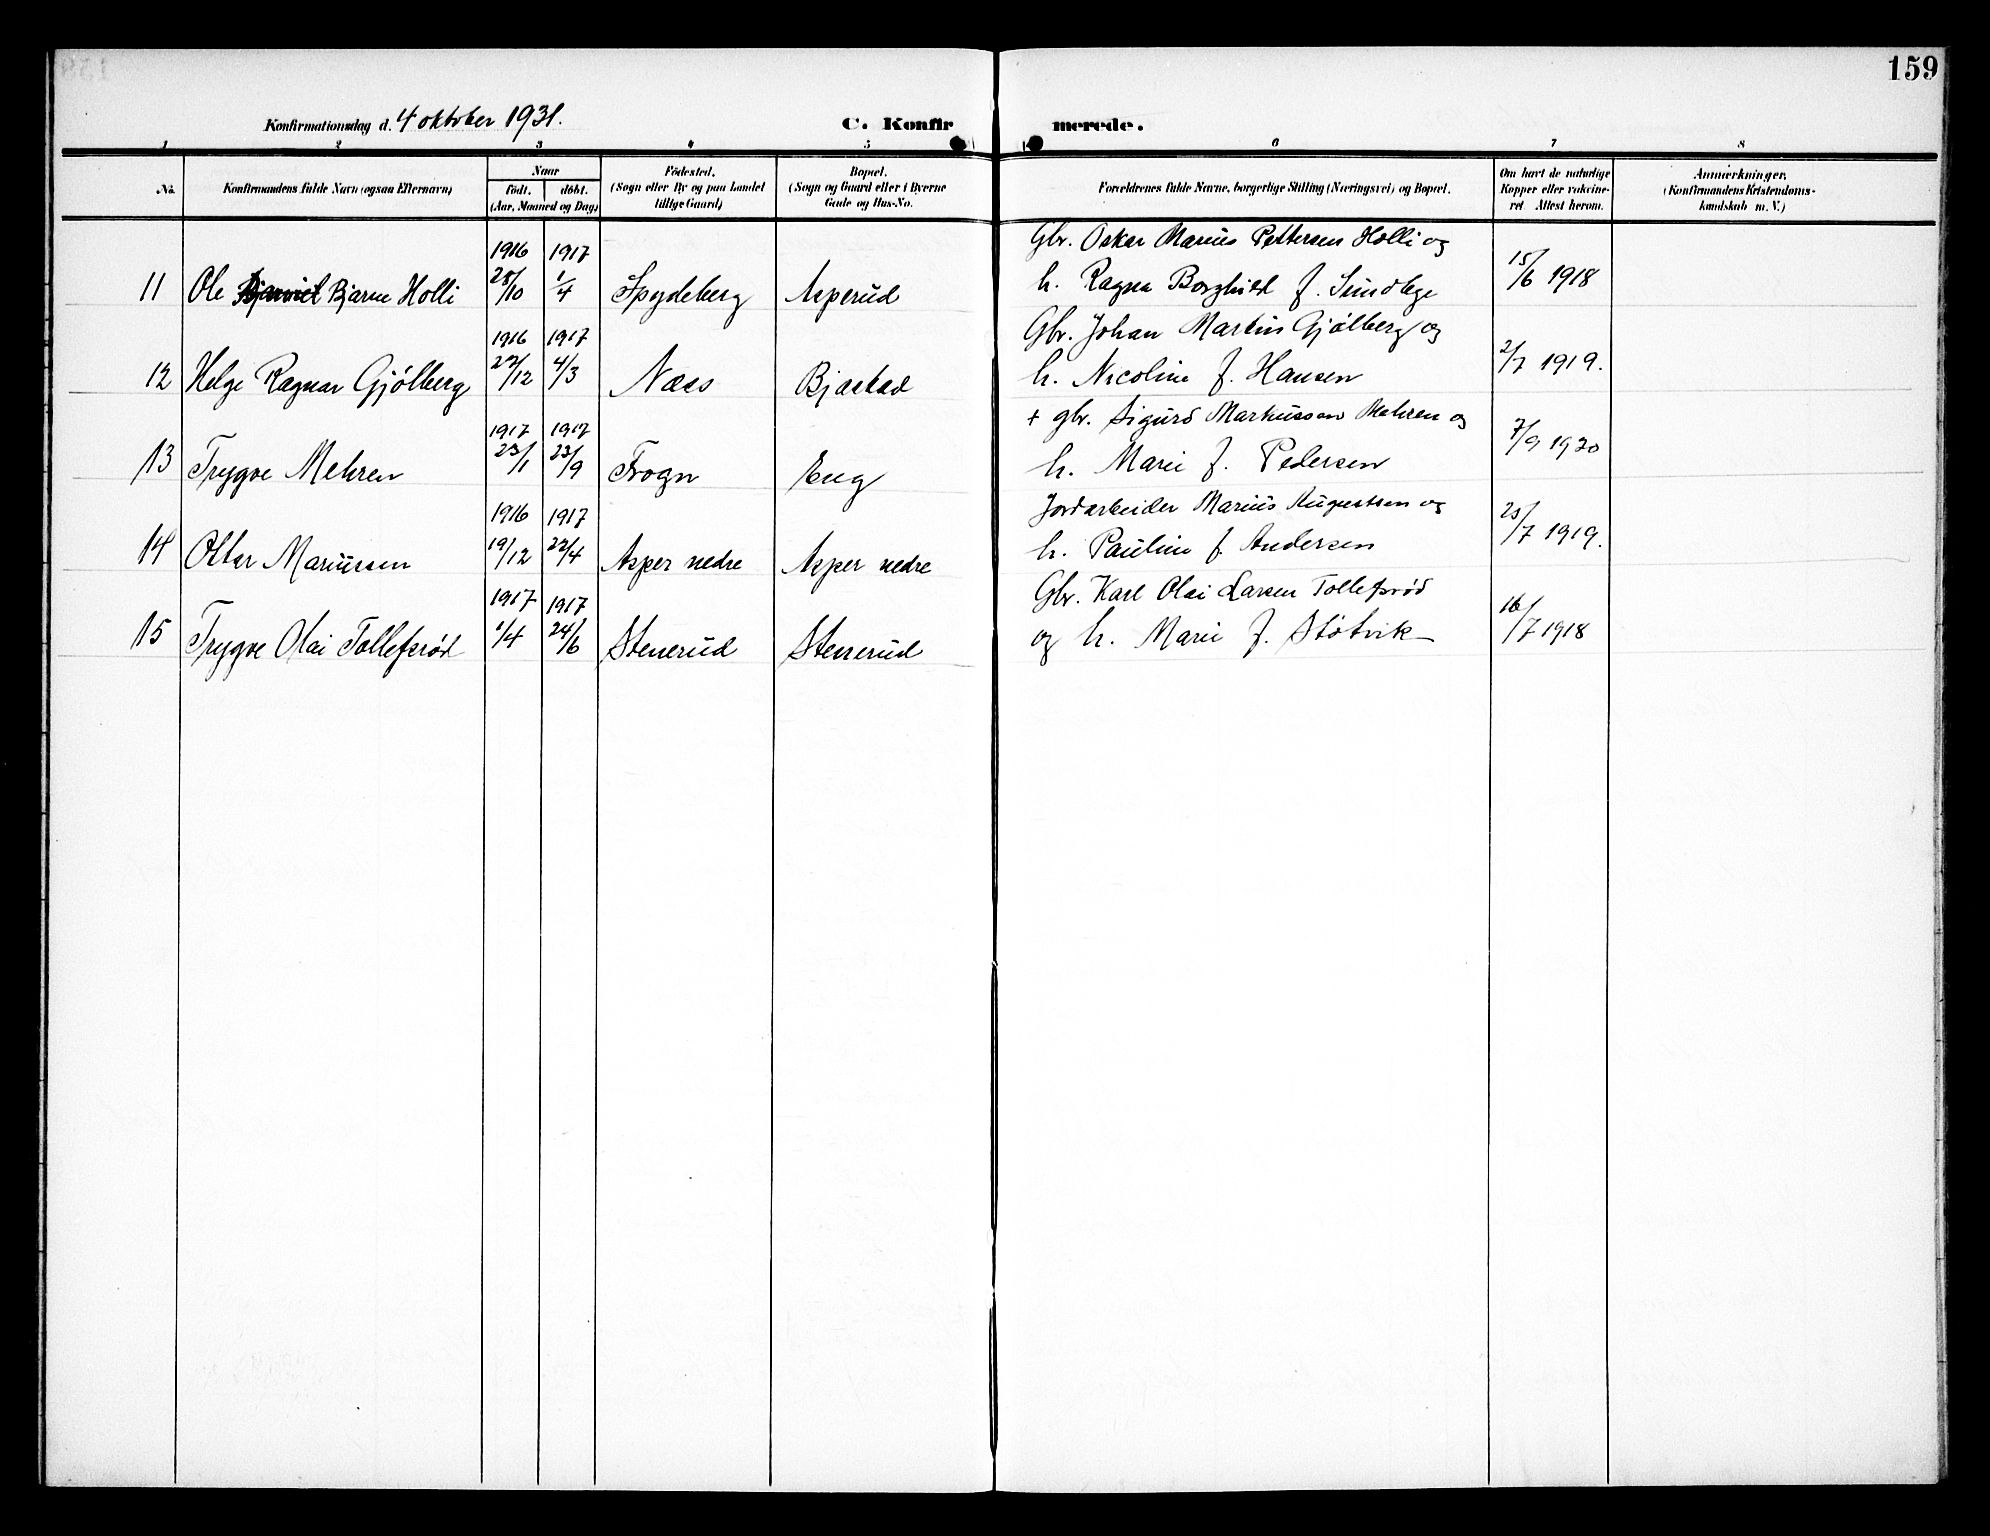 159
Konfirmationsdag d. 4 oktober 1931.
C. Konfirmerede.
1 2 3 4 5 6 7 8
No.
Konfirmandens fulde Navn (ogsaa Efternavn)
Naar
født. døbt.
(Aar, Maaned og Dag)
Födested.
(Sogn eller By og paa Landet
tillige Gaard)
Bopæl.
(Sogn og Gaard eller i Byerne
Gade og Hus-No.
Forældrenes fulde Navne, borgerlige Stilling (Næringsvei) og Bopæl.
Om havt de naturlige
Kopper eller vakcine-
ret Attest herom.
Anmærkninger,
(Konfirmandens Kristendoms-
kundskab m. V.)
1916 1917 Gbr. Oskar Marius Pettersen Holli og
11 Ole Bjarne Holli 25/10 1/4 Spydeberg Asperud h. Ragna Borghild f. Sundbye 15/6 1918
1916 1917 Gbr. Johan Martin Gjølberg og
12 Helge Ragnar Gjølberg 27/12 4/3 Næss Bjastad h. Nicoline f. Hansen 2/7 1919.
1917 1917 + gbr. Sigurd Markussen Mehren og
13 Trygve Mehren 23/1 23/9 Frogn Eng h. Marie f. Pedersen 7/9 1920
1916 1917 Jordarbeider Marius Augustsen og
14 Ottar Mariussen 19/12 22/4 Asper nedre Asper nedre h. Pauline f. Andersen 25/7 1919.
1917 1917 Gbr. Karl Olai Larsen Tollefsrød
15 Trygve Olai Tollefsrød 1/4 24/6 Stenerud Stenerud og h. Marie f. Støtvik 16/7 1918